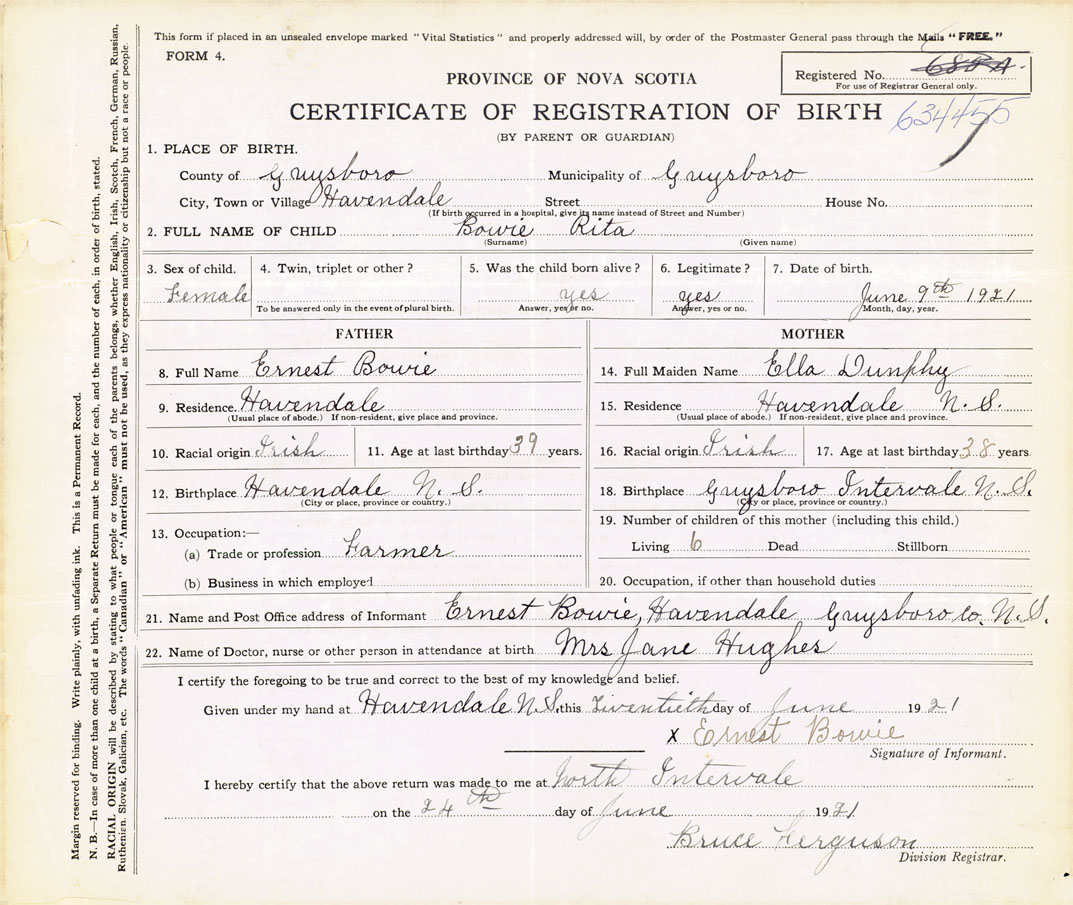 This form if placed in an unsealed envelope marked "Vital Statistics" and properly addressed will, by order of the Postmaster General pass through the Mails "FREE."
FORM 4.
Registered No.
For use of Registrar General only.
PROVINCE OF NOVA SCOTIA
CERTIFICATE OF REGISTRATION OF BIRTH 634455
(BY PARENT OR GUARDIAN)
1. PLACE OF BIRTH.
County of Guysboro Municipality of Guysboro
City, Town or Village Havendale Street House No.
(If birth occurred in a hospital, give its name instead of Street and Number)
2. FULL NAME OF CHILD Bowie Rita
(Surname) (Given name)
3. Sex of child. 4. Twin, triplet or other? 5. Was the child born alive? 6. Legitimate? 7. Date of birth.
Female yes yes June 9th 1921
To be answered only in the event of plural birth. Answer, yes or no. Answer, yes or no. Month, day, year.
FATHER
8. Full Name Ernest Bowie
9. Residence. Havendale
(Usual place of abode.) If non-resident, give place and province.
10. Racial origin Irish 11. Age at last birthday 39 years.
12. Birthplace Havendale N. S.
(City or place, province or country.)
13. Occupation:—
(a) Trade or profession Farmer
(b) Business in which employed
MOTHER
14. Full Maiden Name Ella Dunphy
15. Residence Havendale N. S.
(Usual place of abode.) If non-resident, give place and province.
16. Racial origin Irish 17. Age at last birthday 38 years
18. Birthplace Guysboro Intervale N. S.
(City or place, province or country.)
19. Number of children of this mother (including this child.)
Living 6 Dead Stillborn
20. Occupation, if other than household duties
21. Name and Post Office address of Informant Ernest Bowie, Havendale Guysboro Co. N. S.
22. Name of Doctor, nurse or other person in attendance at birth Mrs Jane Hughes
I certify the foregoing to be true and correct to the best of my knowledge and belief.
Given under my hand at Havendale N. S. this Twentieth day of June 1921
X Ernest Bowie
Signature of Informant.
I hereby certify that the above return was made to me at North Intervale
on the 24th day of June 1921
Bruce Ferguson
Division Registrar.
Margin reserved for binding. Write plainly, with unfading ink. This is a Permanent Record.
N. B.—In case of more than one child at a birth, a Separate Return must be made for each, and the number of each, in order of birth, stated.
RACIAL ORIGIN will be described by stating to what people or tongue each of the parents belongs, whether English, Irish, Scotch, French, German, Russian,
Ruthenian, Slovak, Galician, etc. The words "Canadian" or "American" must not be used, as they express nationality or citizenship but not a race or people.